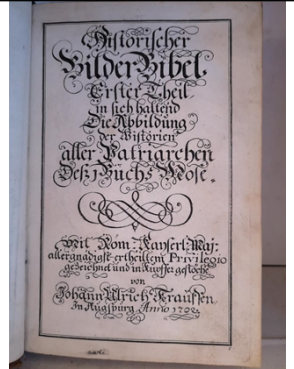 Historischer
Bilder Bibel,
Erster Theil
in sich haltend
Die Abbildung
der Historien
aller Patriarchen
Deß 1 Buchs Mose.
Mit Röm: Kayserl: Maj:
allergnädigst ertheiltem Privilegio
gezeichnet und in Kupffer gestoche
von
Johann Ulrich Kraussen
In Augspurg Anno